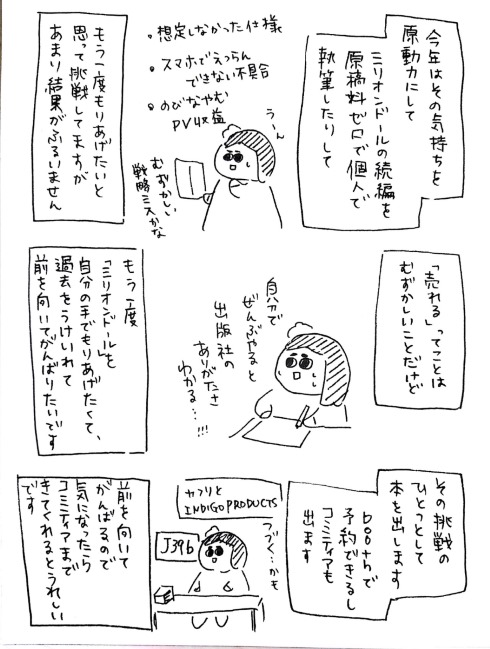 今年はその気持ちを
原動力にして
ミリオンドールの続編を
原稿料ゼロで個人で
執筆したりして
・想定しなかった仕様
・スマホでえつらん
できない不具合
・のびなやむ
PV収益
うーん
むずかしい
戦略ミスかな
もう一度もりあげたいと
思って挑戦してますが
あまり結果がふるいません
「売れる」ってことは
むずかしいことだけど
自分で
ぜんぶやると
出版社の
ありがたさ
わかる…!!!
もう一度
「ミリオンドール」を
自分の手でもりあげたくて、
過去をうけいれて
前を向いてがんばりたいです
その挑戦の
ひとつとして
本を出します
boothで
予約できるし
コミティアも
出ます
カフリと
INDIGOPRODUCTS
J39b
つづく…かも
前を向いて
がんばるので
気になったら
コミティアまで
きてくれるとうれしい
です